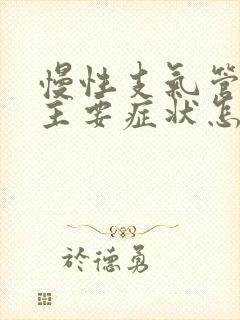 慢性支氣管
主要症狀怎
於德勇